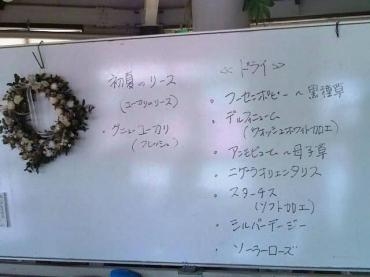 初夏のリース
(ユーカリのリース)
・グニューユーカリ
(フレッシュ)
≪ドライ≫
・フーセンポピー～黒種草
・デルフィニューム
(ウォッシュホワイト加工)
・アンモビューム～母子草
・ニゲラオリエンタリス
・スターチス
(ソフト加工)
・シルバーデージー
・ソーラーローズ